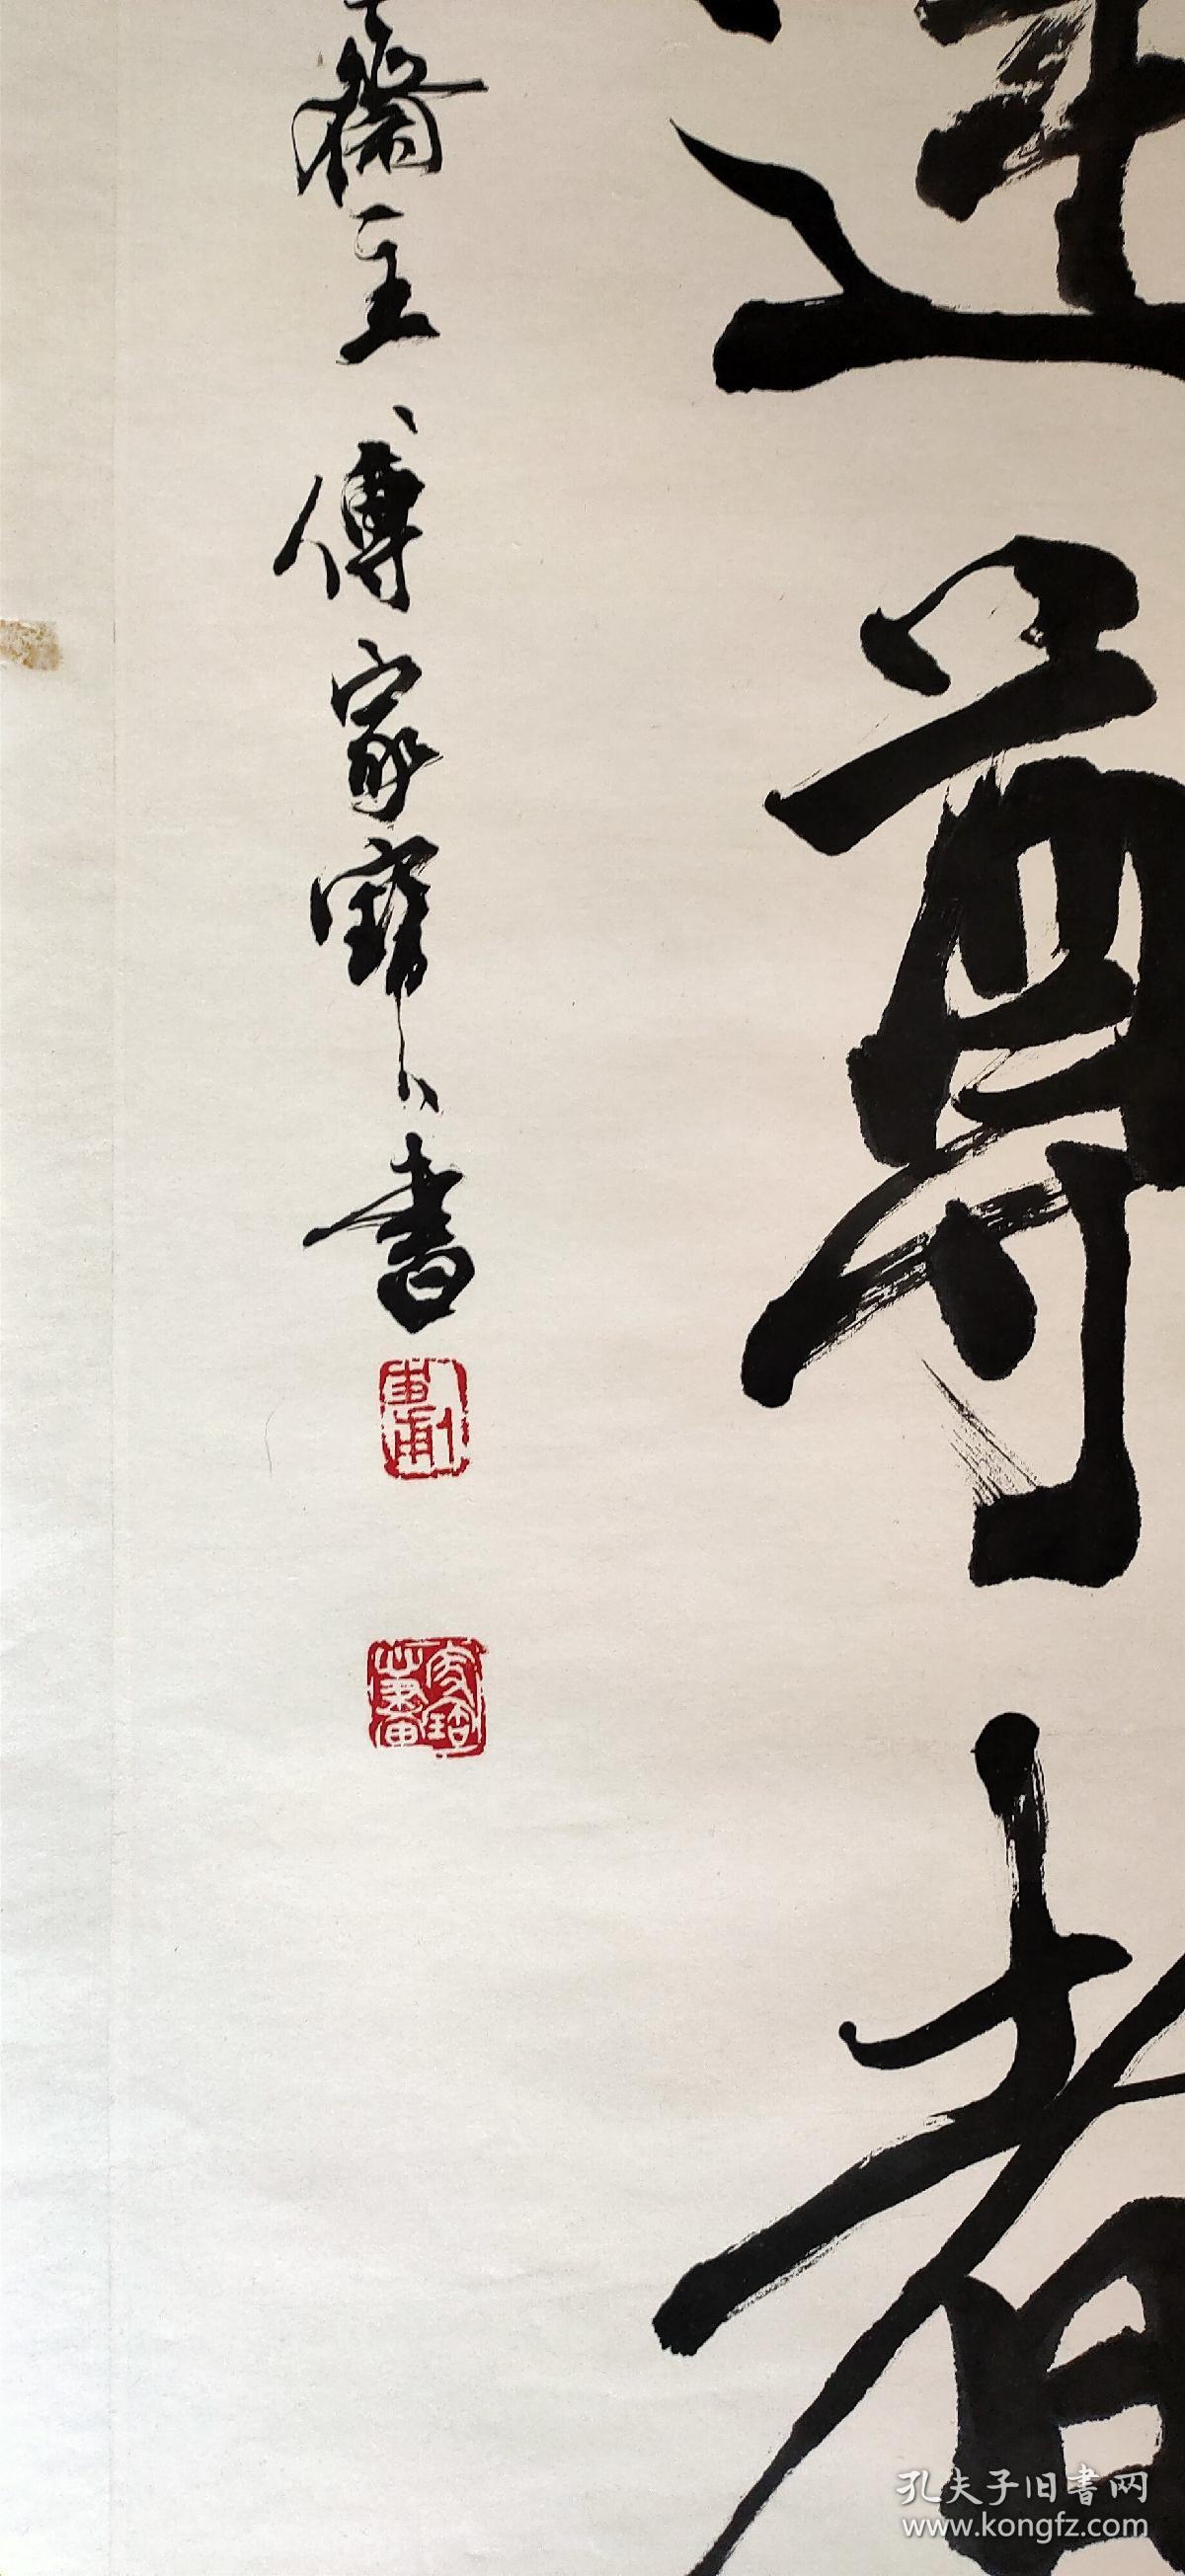 達尊者
齋主傅家寶書
孔夫子旧書网
www.kongfz.com